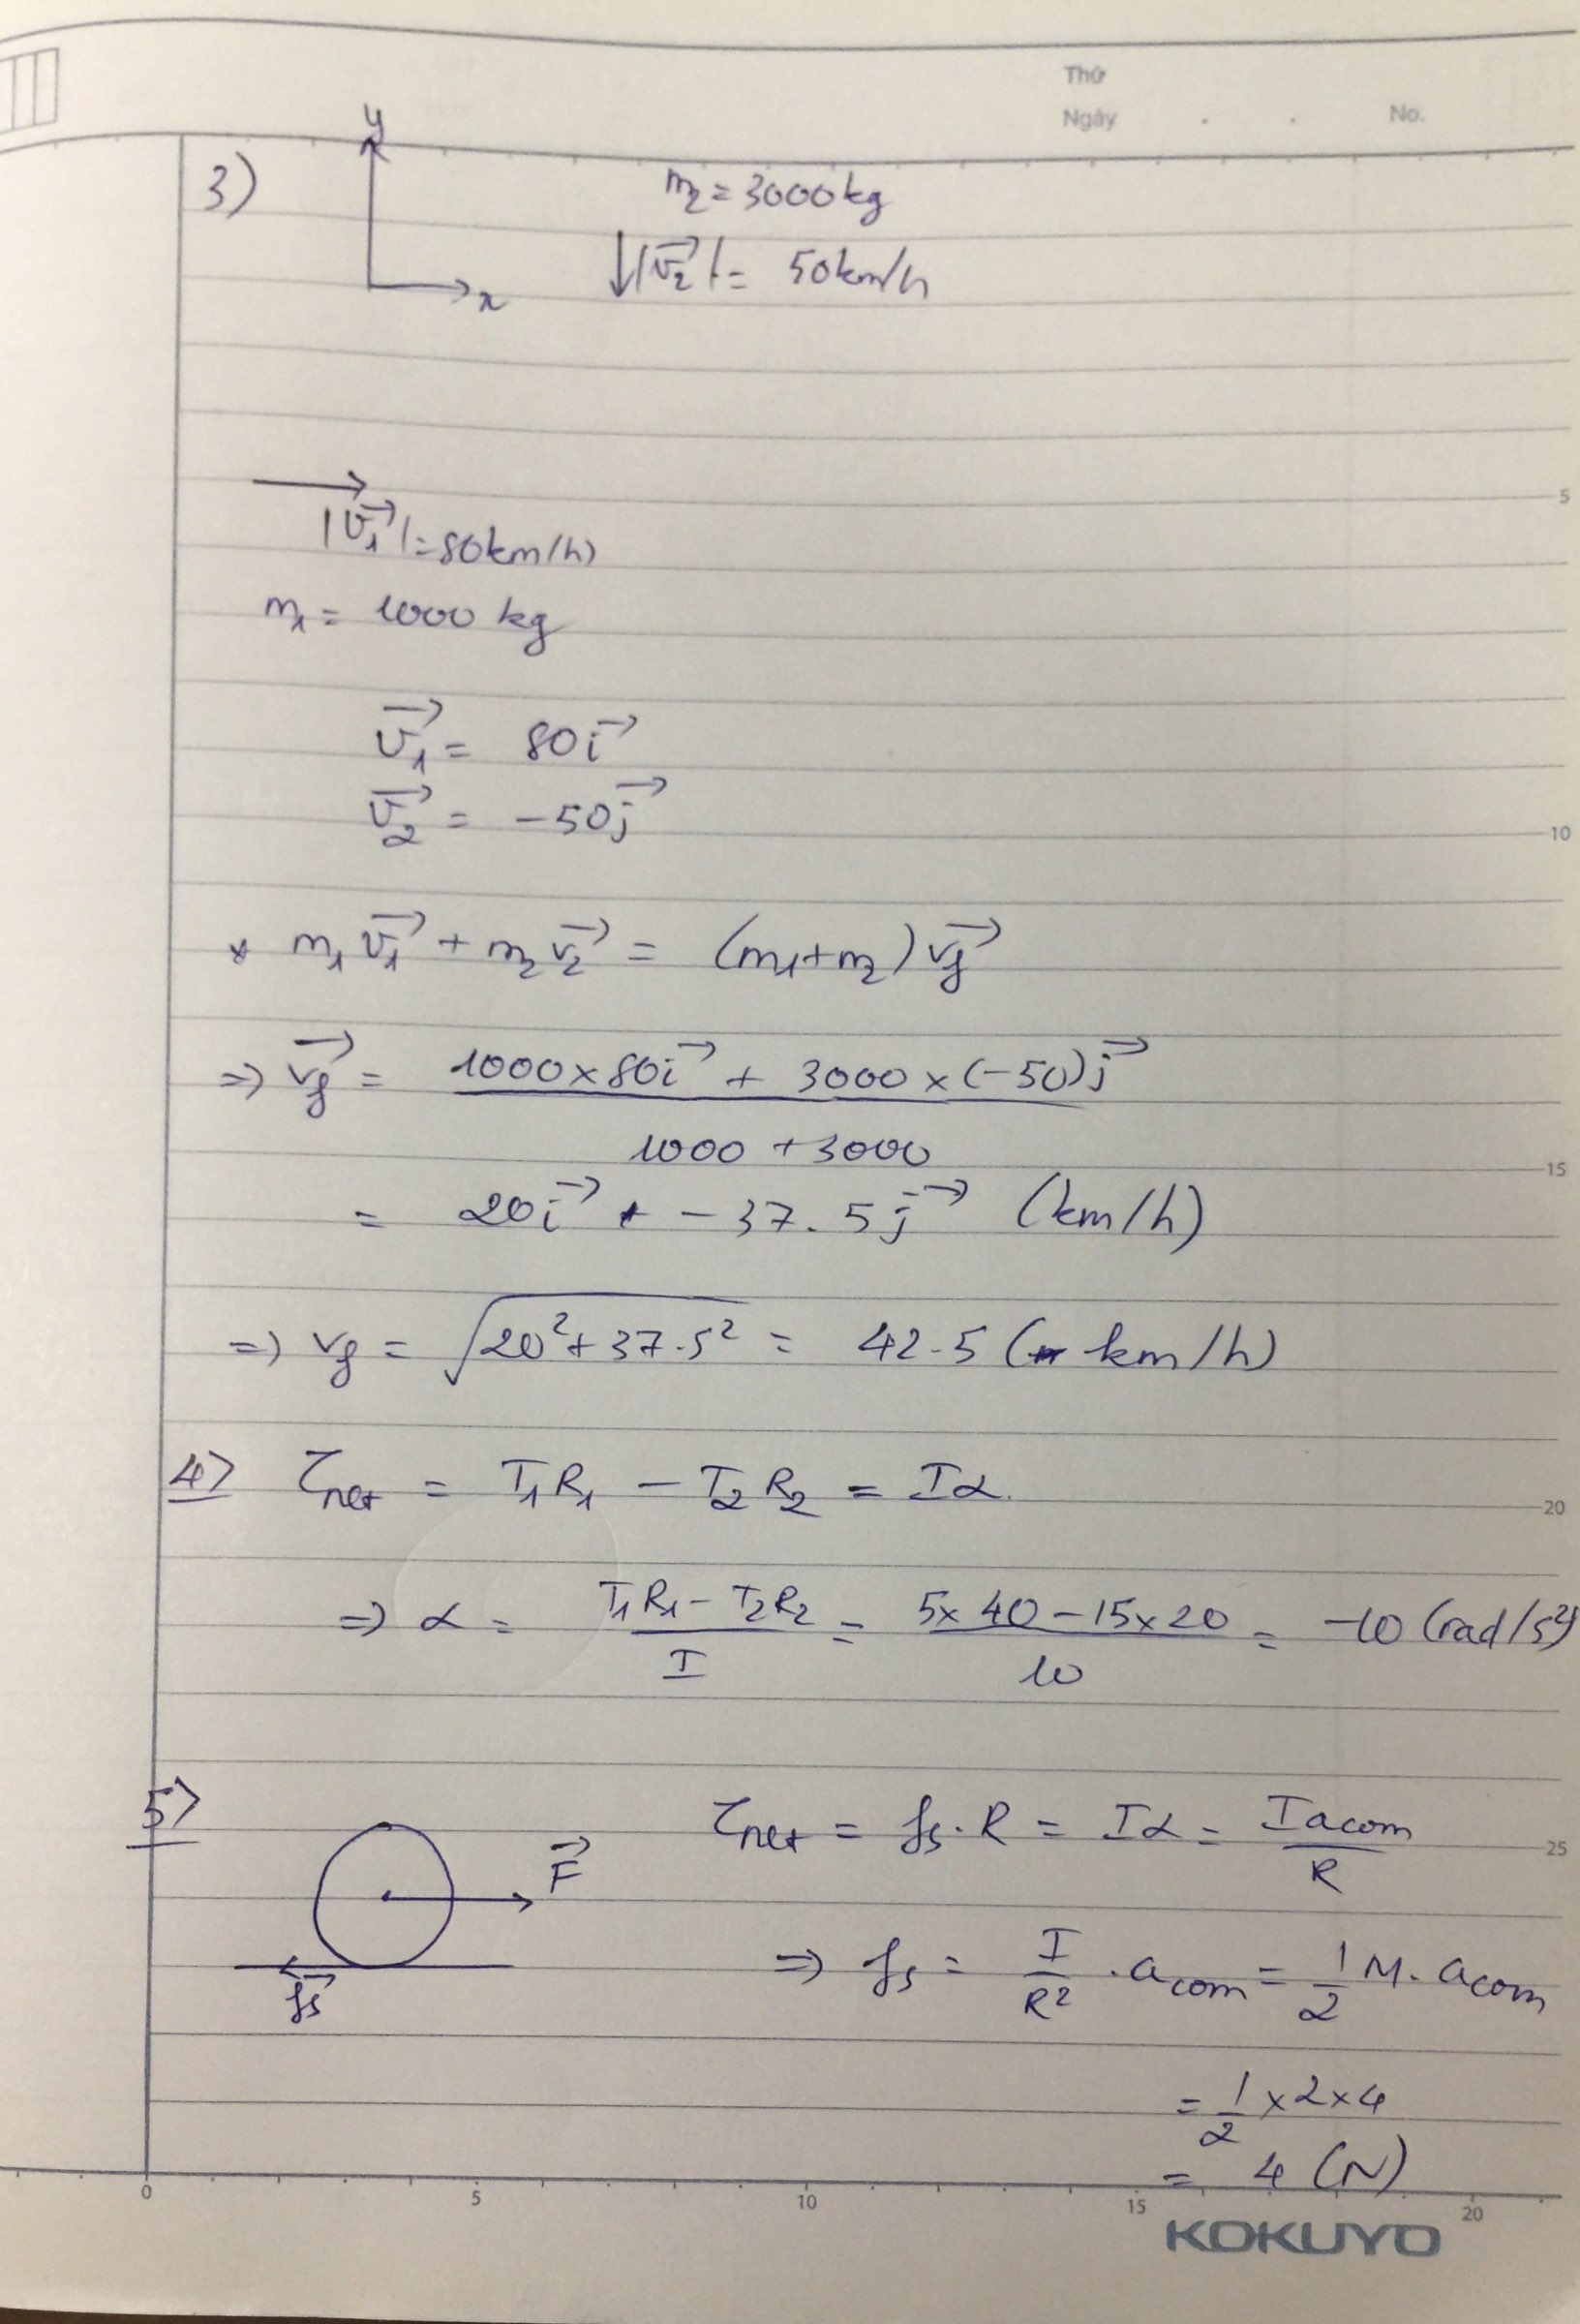 Thứ
Ngày . . No.
3)
y
x
m₂ = 3000kg
|v₂⃗| = 50km/h
|v₁⃗| = 80km/h)
m₁ = 1000 kg
v₁⃗ = 80i⃗
v₂⃗ = -50j⃗
* m₁v₁⃗ + m₂v₂⃗ = (m₁+m₂)v_f⃗
=> v_f⃗ = (1000×80i⃗ + 3000×(-50)j⃗) / (1000 + 3000)
= 20i⃗ + -37.5j⃗ (km/h)
=> v_f = √(20²+37.5²) = 42.5 (km/h)
4> τ_net = T₁R₁ - T₂R₂ = Iα.
=> α = (T₁R₁ - T₂R₂) / I = (5×40 - 15×20) / 10 = -10 (rad/s²)
5> τ_net = f_s.R = Iα = I a_com / R
F⃗
f_s⃗
=> f_s = I/R² . a_com = 1/2 M. a_com
= 1/2 ×2×4
= 4 (N)
5
10
15
20
25
0 5 10 15 20
KOKUYO